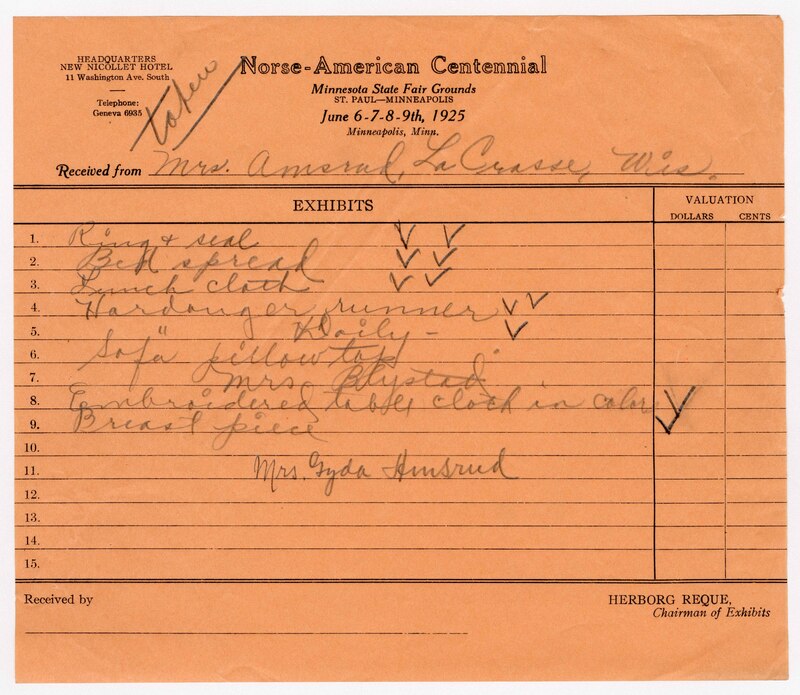 HEADQUARTERS
NEW NICOLLET HOTEL
11 Washington Ave. South
Telephone:
Geneva 6935
taken
Norse-American Centennial
Minnesota State Fair Grounds
ST. PAUL—MINNEAPOLIS
June 6-7-8-9th, 1925
Minneapolis, Minn.
Received from Mrs. Amsrud, La Crosse, Wis.
EXHIBITS
VALUATION
DOLLARS CENTS
1. Ring & seal
2. Bed spread
3. Lunch cloth
4. Hardanger runner
5. " Doily -
6. Sofa pillow top
7. Mrs.
8. Embroidered table cloth in color
9. Breast piece
10.
11. Mrs. Gyda Amsrud
12.
13.
14.
15.
Received by
HERBORG REQUE,
Chairman of Exhibits